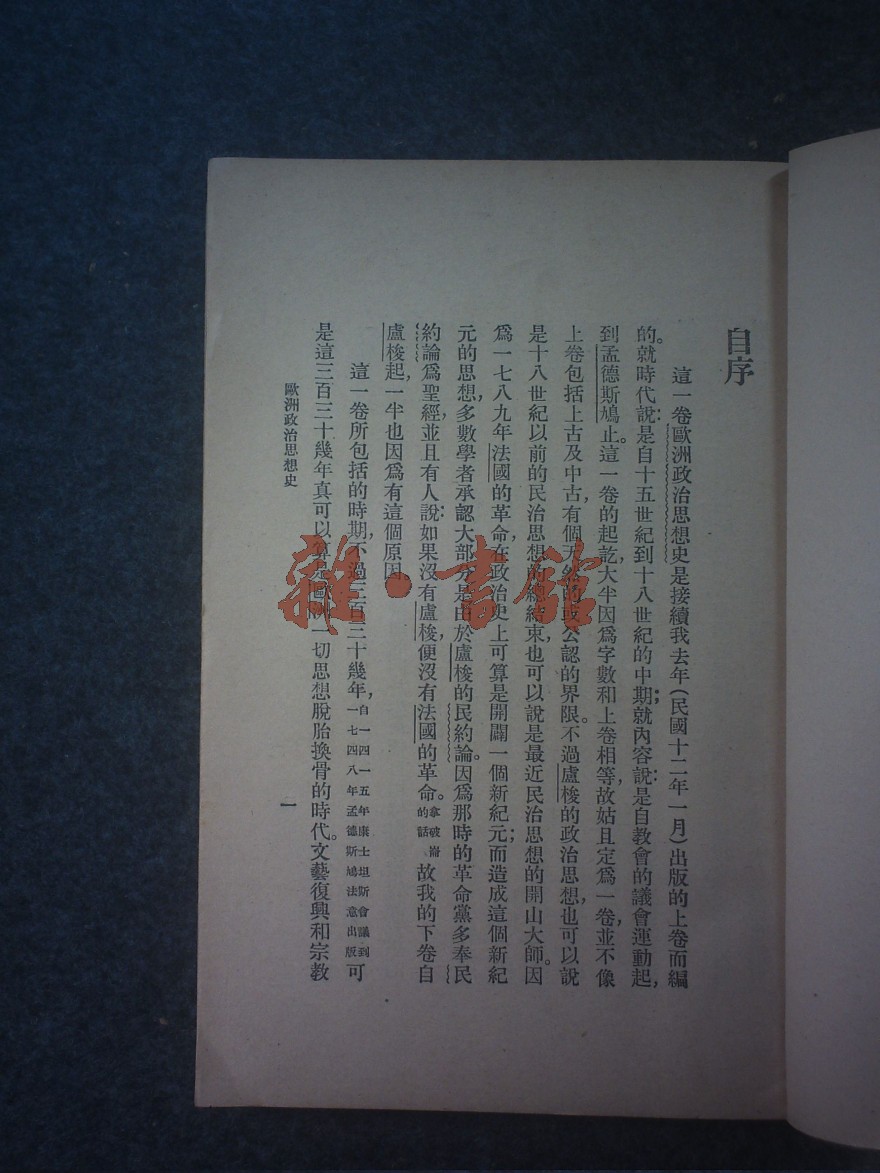 自序
這一卷歐洲政治思想史是接續我去年(民國十二年一月)出版的上卷而編
的。就時代說:是自十五世紀到十八世紀的中期;就內容說:是自教會的議會運動起,
到孟德斯鳩止。這一卷的起訖,大半因爲字數和上卷相等,故姑且定爲一卷,並不像
上卷包括上古及中古,有個天然的或公認的界限。不過盧梭的政治思想,也可以說
是十八世紀以前的民治思想的總結束,也可以說是最近民治思想的開山大師。因
爲一七八九年法國的革命,在政治史上可算是開闢一個新紀元;而造成這個新紀
元的思想,多數學者承認大部分是由於盧梭的民約論。因爲那時的革命黨多奉民
約論爲聖經,並且有人說:如果沒有盧梭,便沒有法國的革命。拿破崙的話故我的下卷自
盧梭起,一半也因爲有這個原因
這一卷所包括的時期,不過三百三十幾年,自一四一五年康士坦斯會議到一七四八年孟德斯鳩法意出版可
是這三百三十幾年眞可以算是歐洲一切思想脫胎換骨的時代。文藝復興和宗教
歐洲政治思想史
一
雜·書館